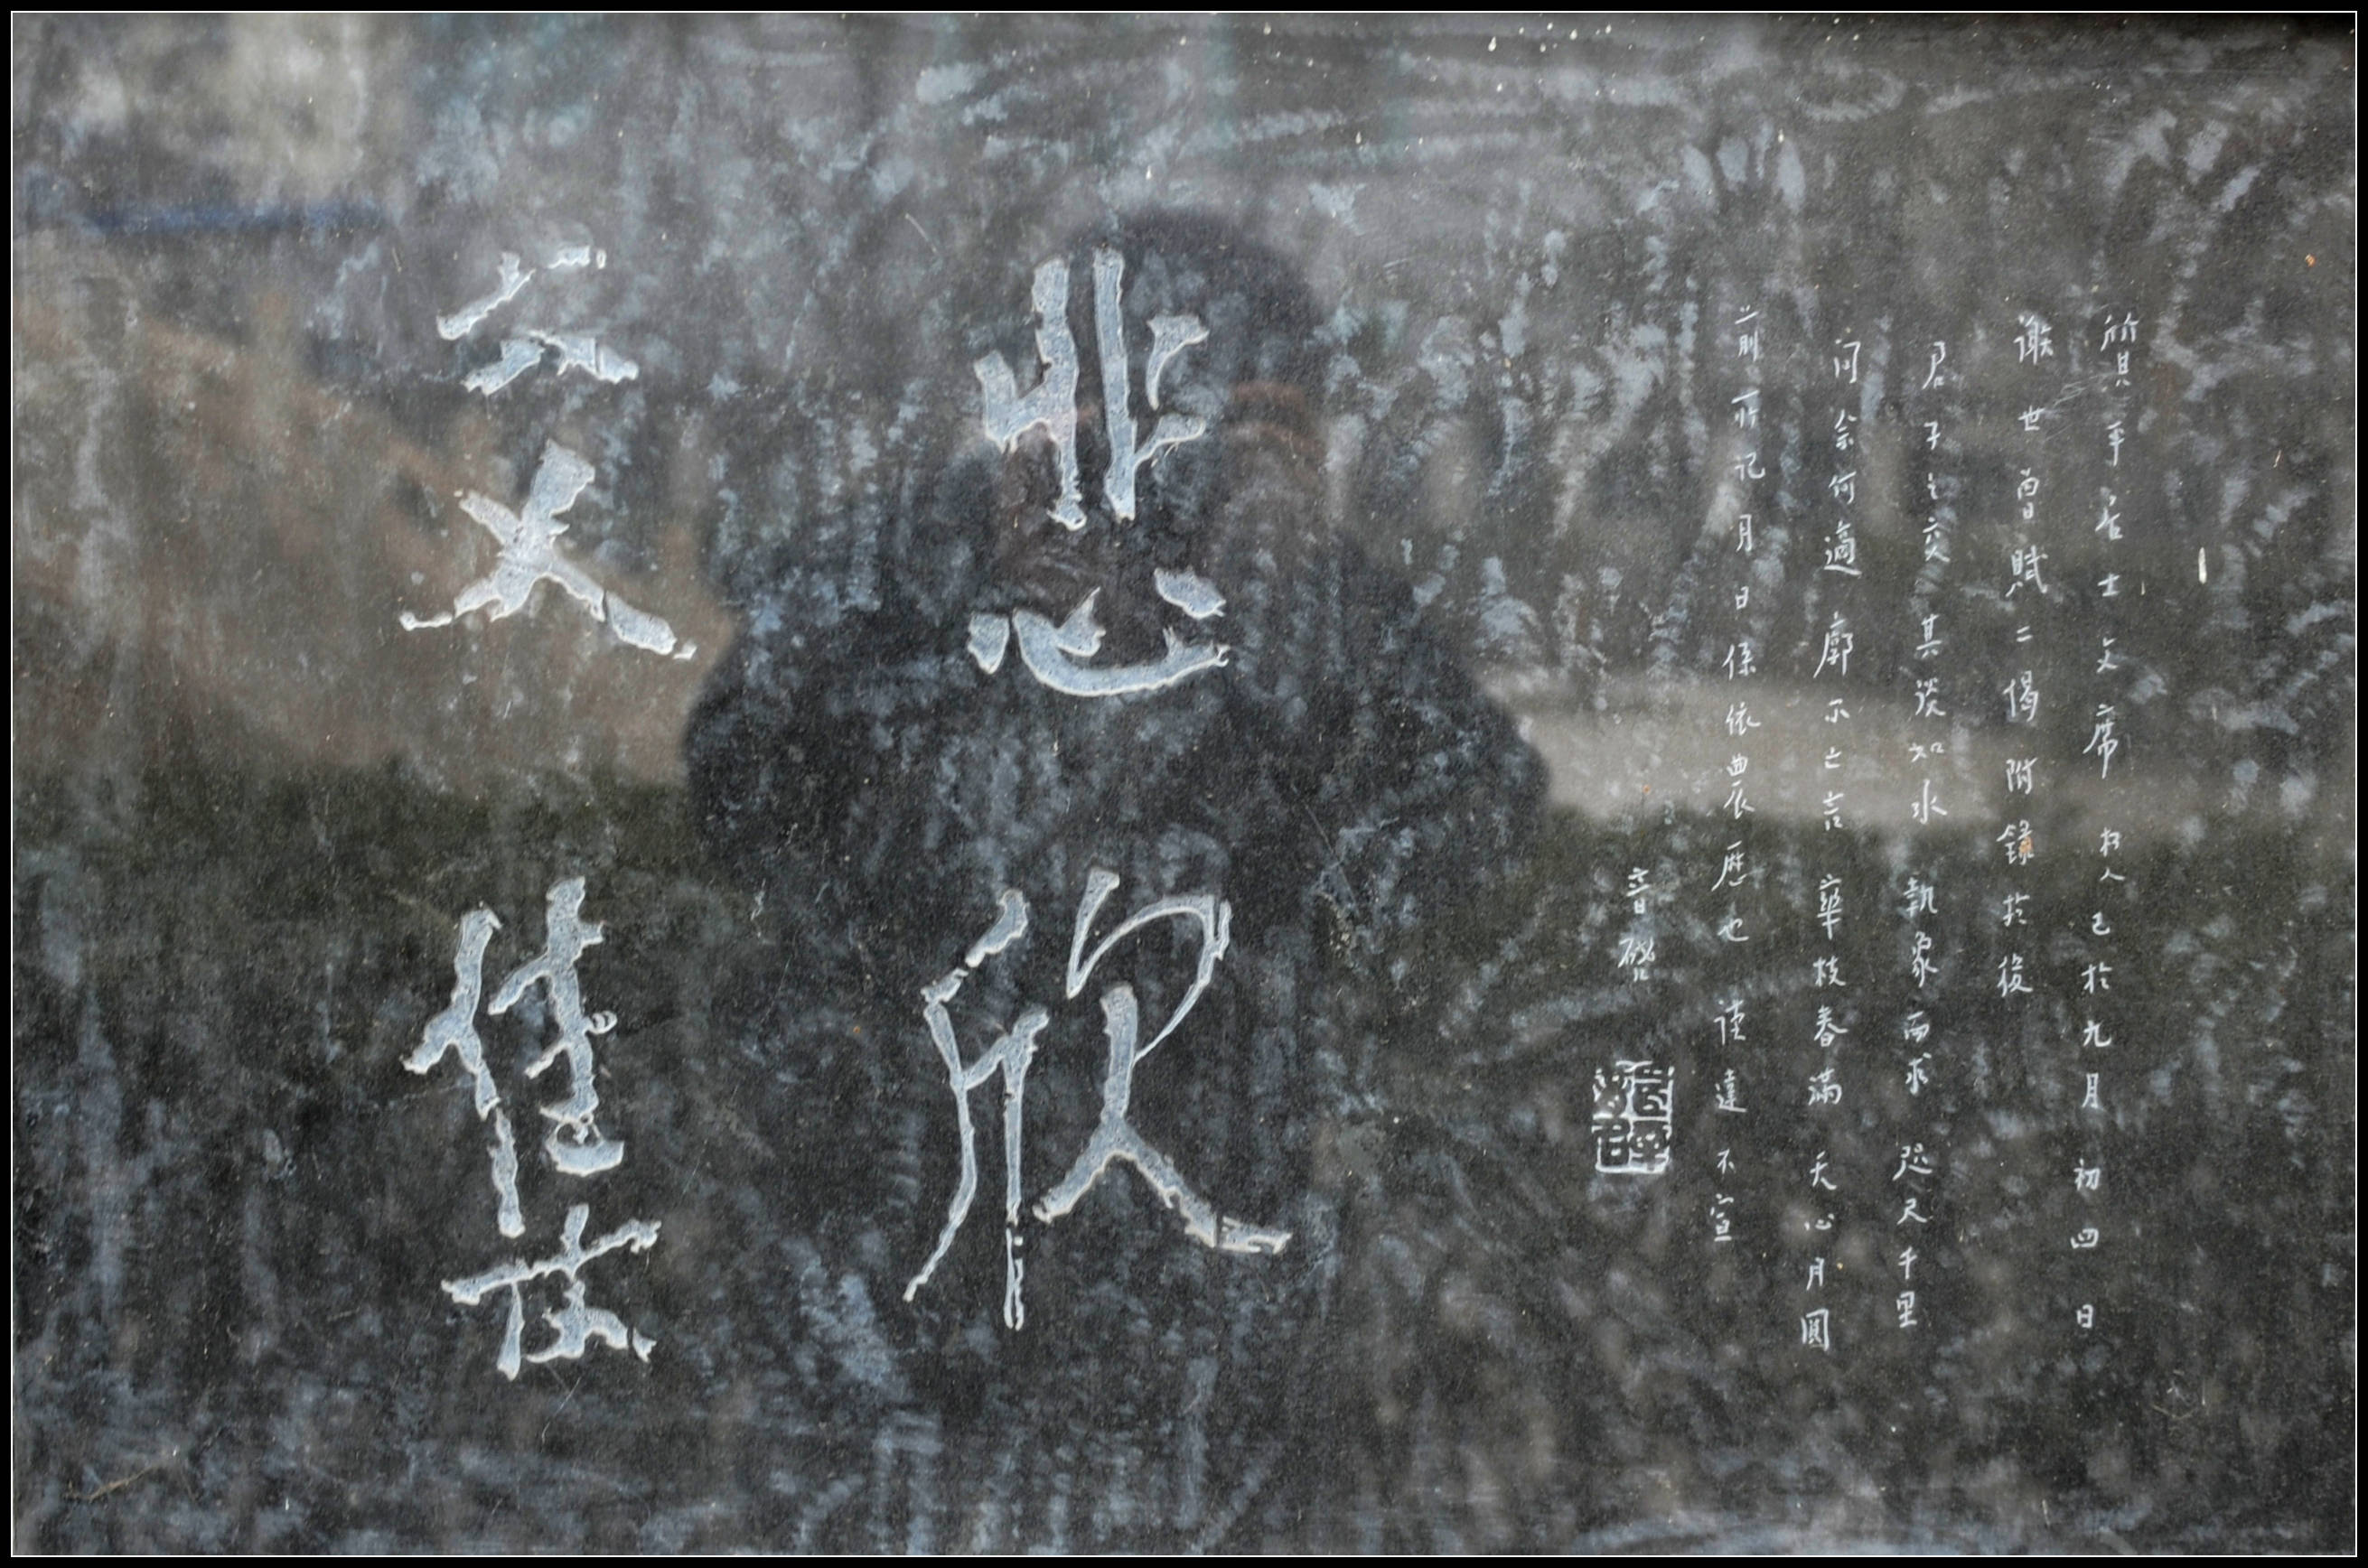 質平居士文席 朽人已於九月初四日
謝世曾賦二偈附錄於後
君子之交其淡如水 執象而求 咫尺千里
問余何適廓尒亡言 華枝春滿天心月圓
前所記月日係依農歷也 謹達不宣
音啟
悲欣
交集